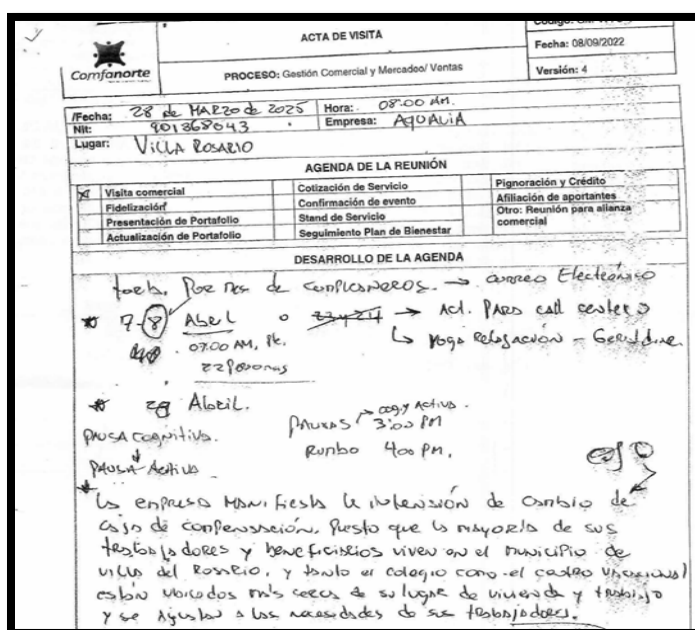 ACTA DE VISITA
Fecha: 08/09/2022
Comfanorte
PROCESO: Gestión Comercial y Mercadeo/ Ventas
Versión: 4
/Fecha: 28 de MARZO de 2025 Hora: 08:00 AM.
Nit: 901368043 Empresa: AQUALIA
Lugar: VILLA ROSARIO
AGENDA DE LA REUNIÓN
X Visita comercial Cotización de Servicio Pignoración y Crédito
Fidelización Confirmación de evento Afiliación de aportantes
Presentación de Portafolio Stand de Servicio Otro: Reunión para alianza comercial
Actualización de Portafolio Seguimiento Plan de Bienestar
DESARROLLO DE LA AGENDA
Por mes de cumpleaneros. → correo Electrónico
* 7-8 Abril o 23 y 24 → Act. PARA call center
07:00 AM, 
↳ yoga Relajación - Geraldine.
22 Personas
* 29 Abril.
PAUSAS → cog y Activa.
3:00 PM
PAUSA Cognitiva.
Rumbo 4:00 PM.
PAUSA Activa
ojo
* La empresa Manifiesta la intensión de cambio de
caja de compensación, puesto que la mayoría de sus
trabajadores y beneficiarios viven en el municipio de
villa del Rosario, y tanto el colegio como el centro vacacional
están ubicados más cerca de su lugar de vivienda y trabajo
y se ajustan a las necesidades de sus trabajadores.